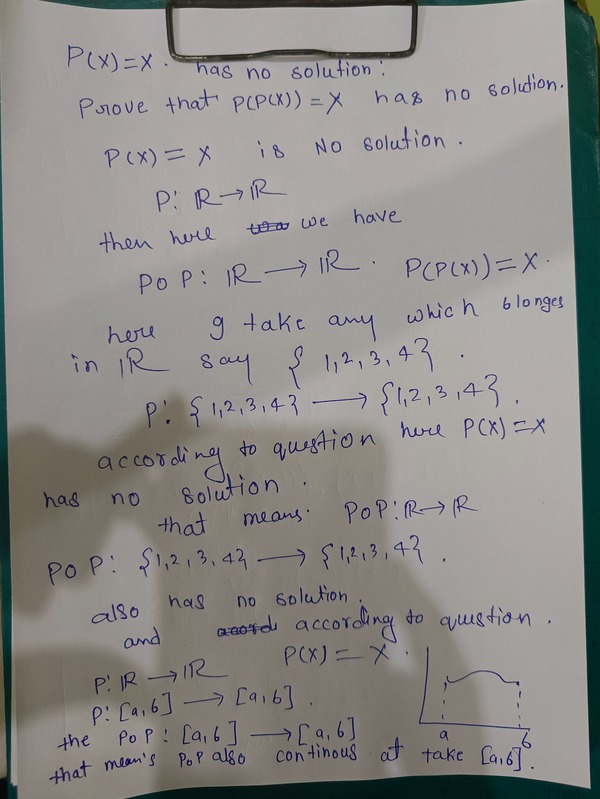 P(X)=X. has no solution:
Prove that P(P(X)) = X has no solution.
P(X) = X is No solution.
P: ℝ→ℝ
then here we have
PoP: ℝ → ℝ. P(P(X)) = X.
here g take any which blonges
in ℝ say { 1,2,3,4}.
P: {1,2,3,4} → {1,2,3,4}.
according to question here P(X)=X
has no solution.
that means. PoP: ℝ→ℝ
PoP: {1,2,3,4} → {1,2,3,4}.
also has no solution.
and according to question.
P: ℝ→ℝ P(X) = X.
P: [a,b] → [a,b].
the PoP: [a,b] → [a,b]
that mean's PoP also continous at take [a,b].
a b